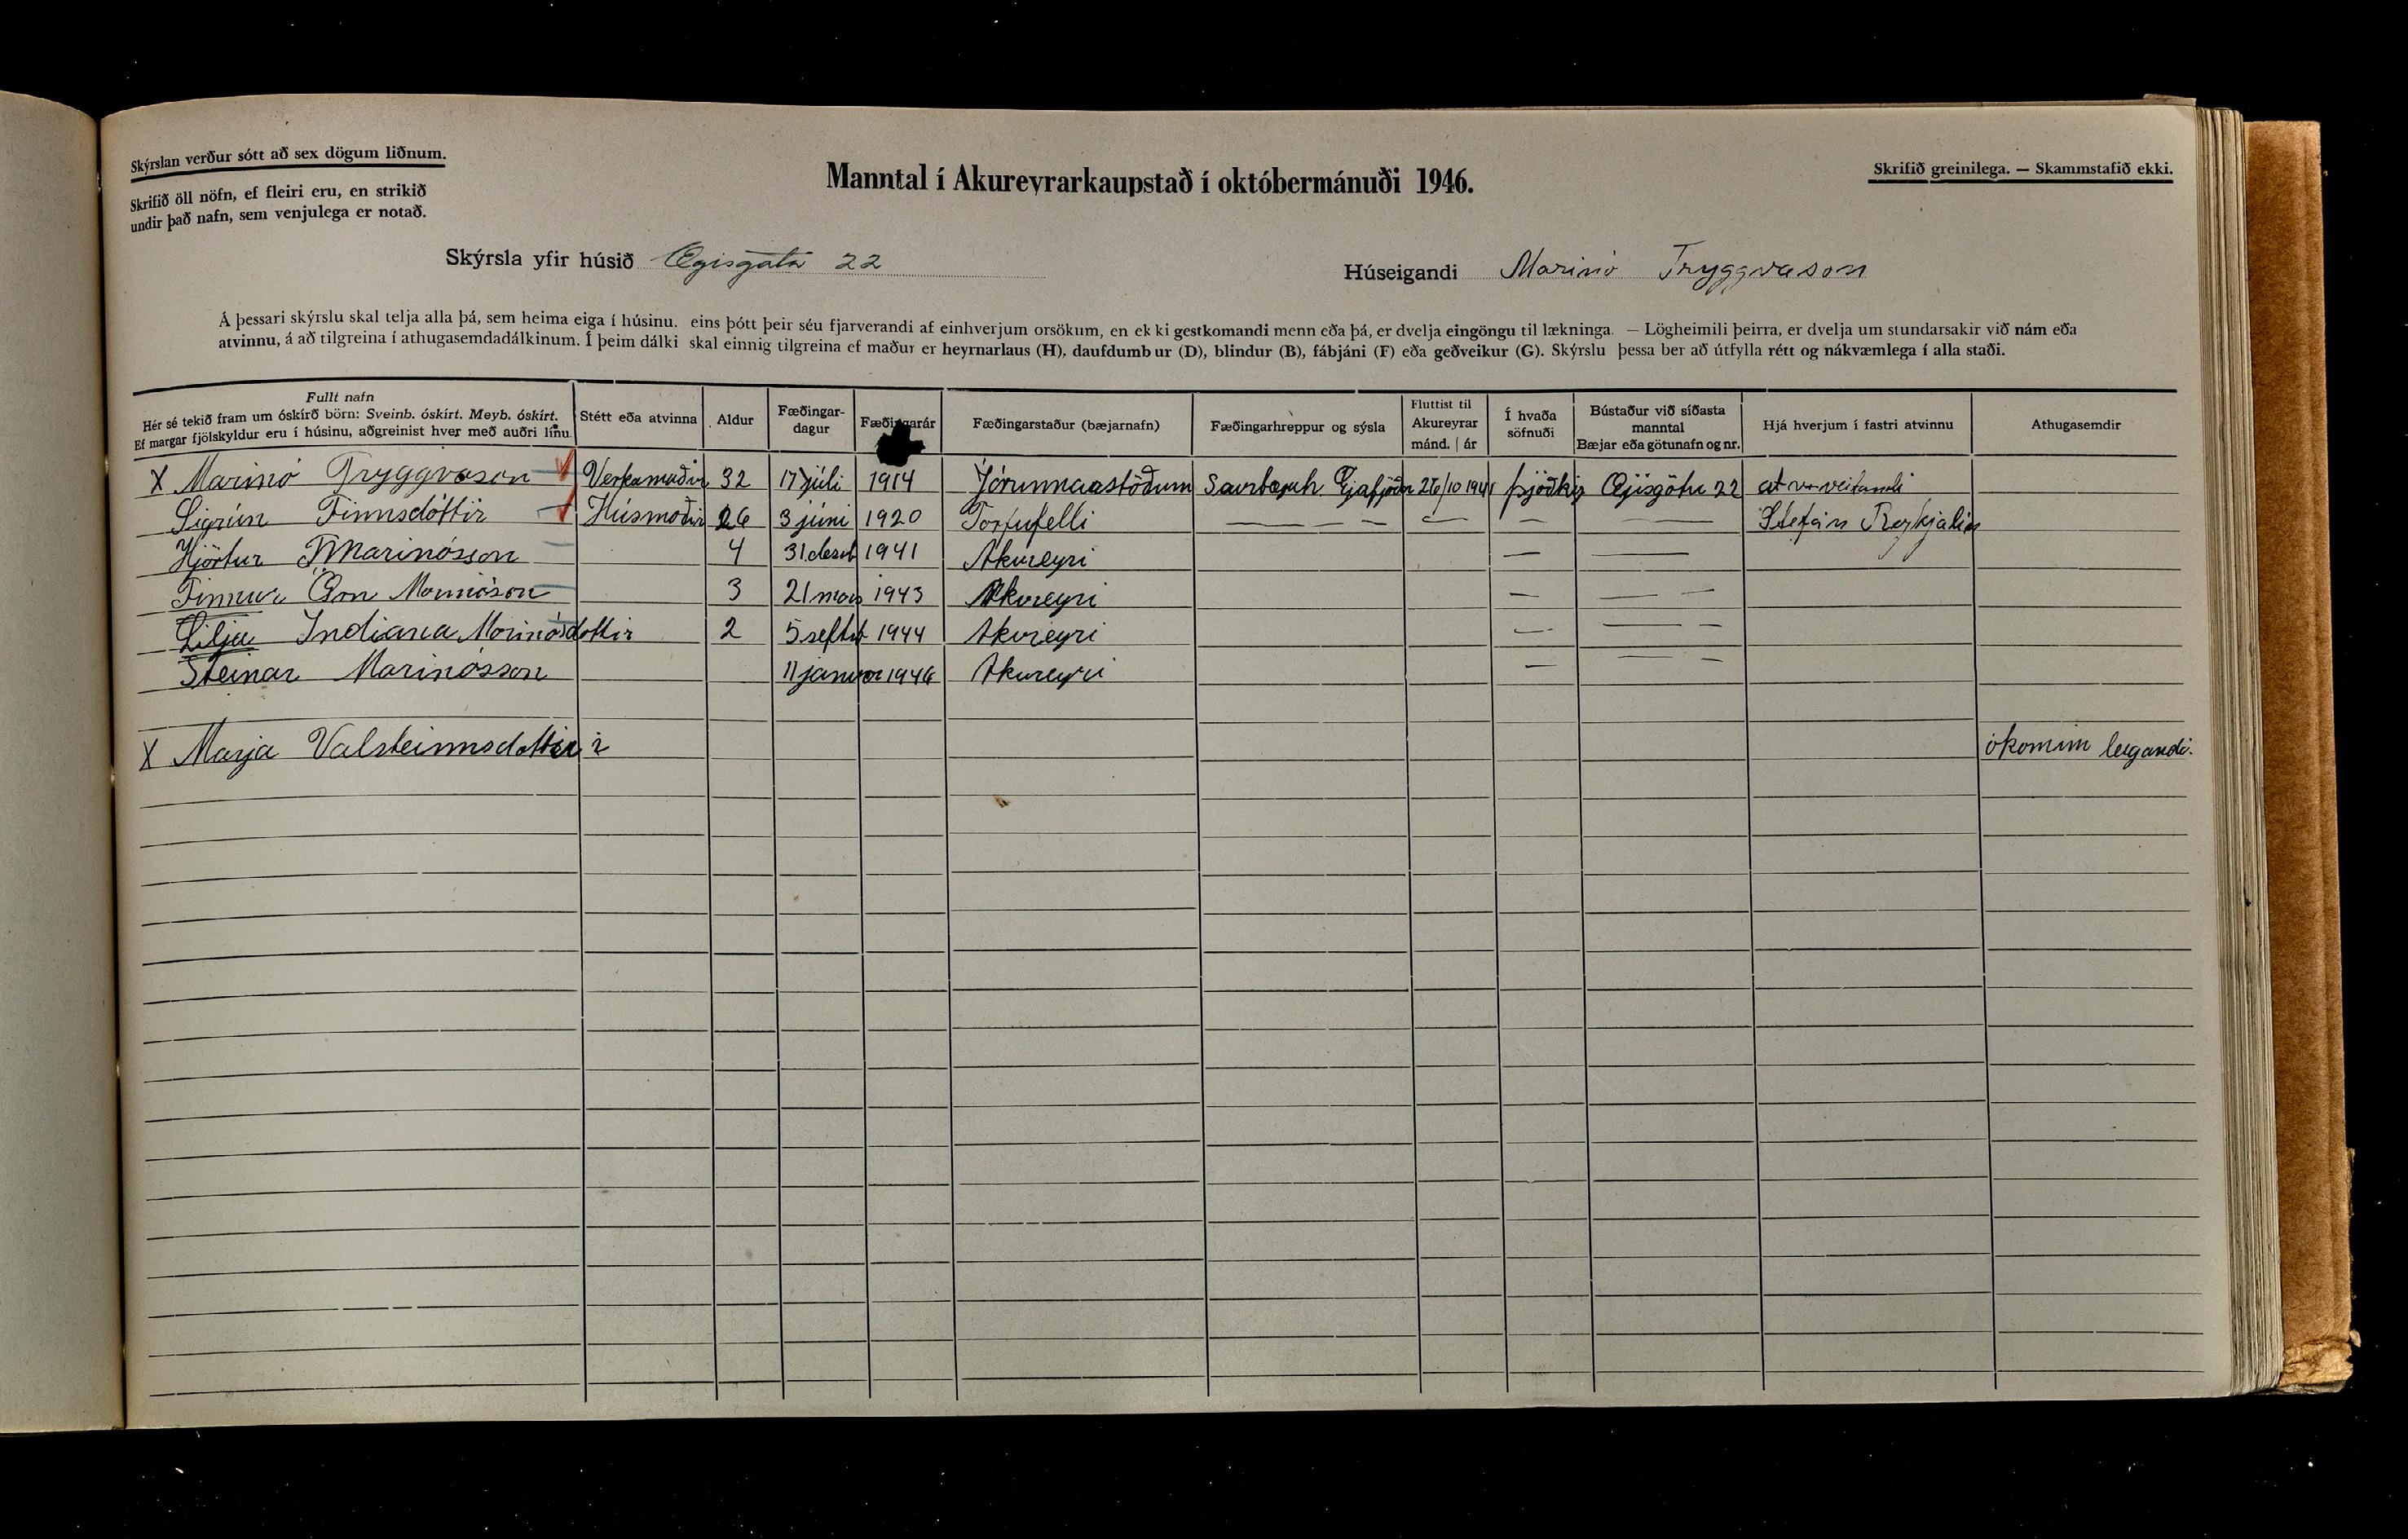 Skýrslan verður sótt að sex dögum liðnum.
Skrifið öll nöfn, ef fleiri eru, en strikið
undir það nafn, sem venjulega er notað.
Manntal í Akureyrarkaupstað í októbermánuði 1946.
Skrifið greinilega. — Skammstafið ekki.
Skýrsla yfir húsið Ægisgata 22
Húseigandi Marinó Tryggvason
Á þessari skýrslu skal telja alla þá, sem heima eiga í húsinu, eins þótt þeir séu fjarverandi af einhverjum orsökum, en ekki gestkomandi menn eða þá, er dvelja eingöngu til lækninga. — Lögheimili þeirra, er dvelja um stundarsakir við nám eða
atvinnu, á að tilgreina í athugasemdadálkinum. Í þeim dálki skal einnig tilgreina ef maður er heyrnarlaus (H), daufdumbur (D), blindur (B), fábjáni (F) eða geðveikur (G). Skýrslu þessa ber að útfylla rétt og nákvæmlega í alla staði.
Fullt nafn
Hér sé tekið fram um óskírð börn: Sveinb. óskírt. Meyb. óskírt.
Ef margar fjölskyldur eru í húsinu, aðgreinist hver með auðri línu.
Stétt eða atvinna
Aldur
Fæðingar-
dagur
Fæðingarár
Fæðingarstaður (bæjarnafn)
Fæðingarhreppur og sýsla
Fluttist til
Akureyrar
mánd. | ár
Í hvaða
söfnuði
Bústaður við síðasta
manntal
Bæjar eða götunafn og nr.
Hjá hverjum í fastri atvinnu
Athugasemdir
X Marinó Tryggvason Verkamaður 32 17 júli 1914 Jórunnaastöðum Saurbæjarh Eyjafjörðr 26/10 1941 þjóðkir Ægisgötu 22 atvvveitandi
Sigrún Finnsdóttir Húsmoðir 26 3 júni 1920 Torfufelli — — — — — — Stefán Reykjalín
Hjörtur Marinósson 4 31.deseb 1941 Akureyri — —
Finnur Marinóson 3 21 mars 1943 Akureyri — — —
Lilja Indiana Marinósdottir 2 5 septeb 1944 Akureyri — — —
Steinar Marinósson 11 januar 1946 Akureyri — — —
X Marja Valsteinnsdottir ókomin leigandi.